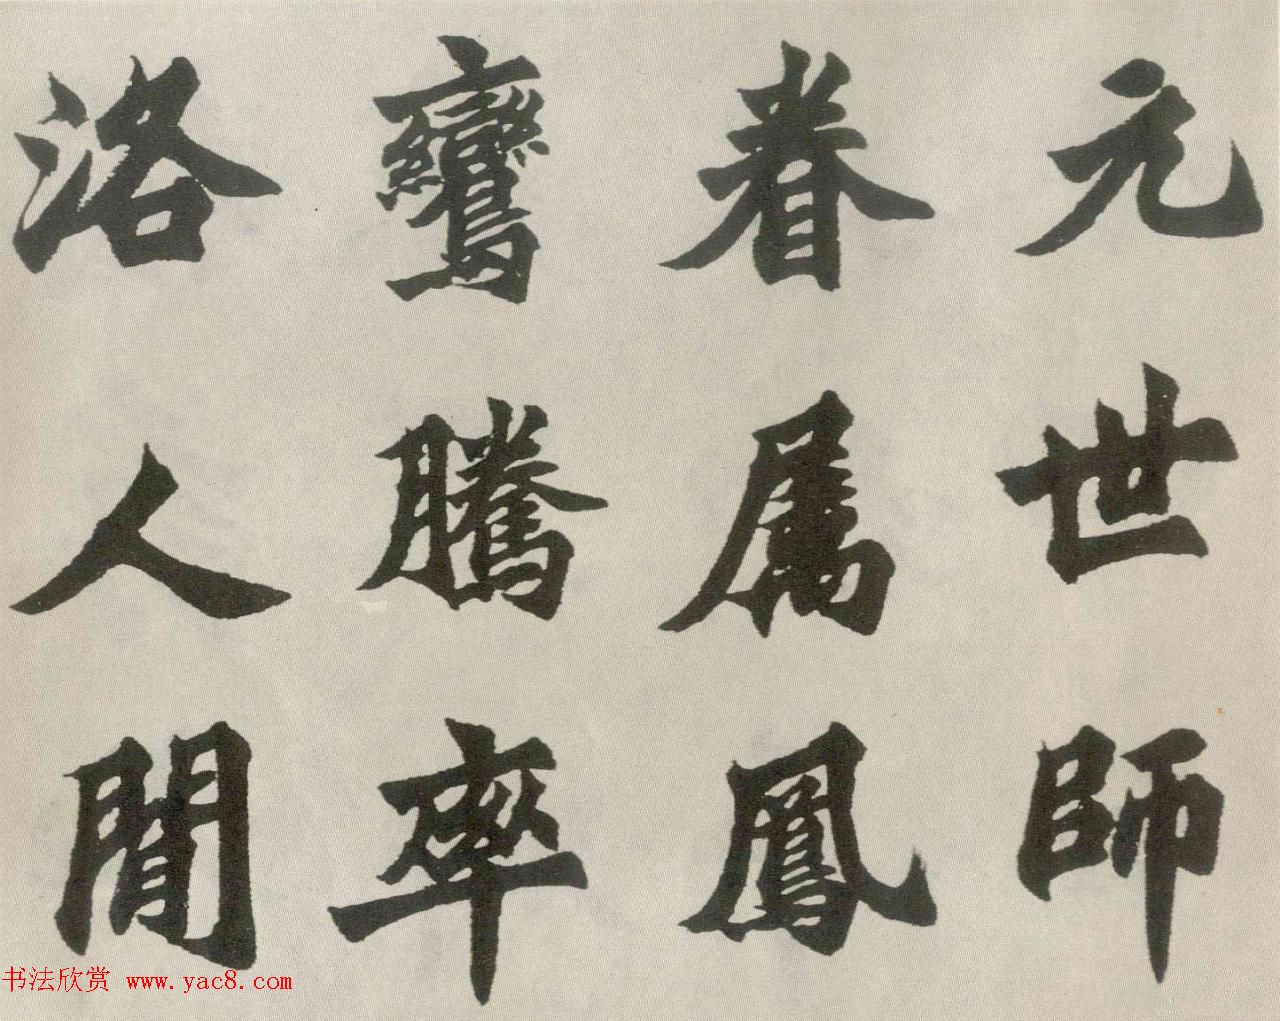 元世師
眷属鳳
鸞騰率
洛人間
书法欣赏 www.yac8.com